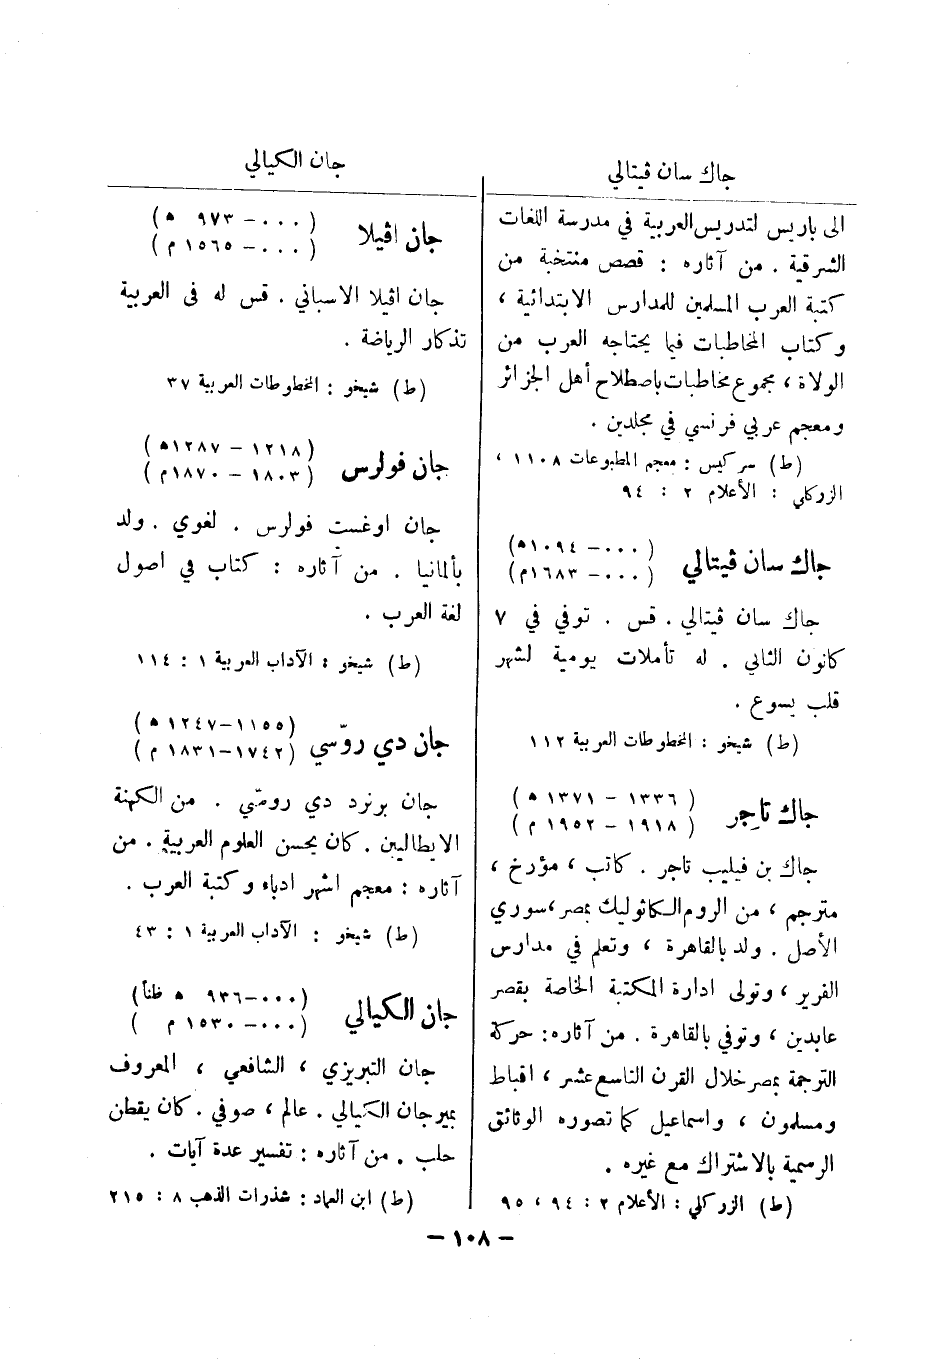 جاك سان ڤيتالي
الى باريس لتدريس العربية في مدرسة اللغات
الشرقية . من آثاره : قصص منتخبة من
كتبة العرب المسلمين للمدارس الابتدائية ،
وكتاب المخاطبات فيما يحتاجه العرب من
الولاة ، مجموع مخاطبات باصطلاح أهل الجزائر
ومعجم عربي فرنسي في مجلدين .
(ط) سركيس : معجم المطبوعات ١١٠٨ ،
الزركلي : الأعلام ٢ : ٩٤
جاك سان ڤيتالي
( ٠٠٠ – ١٠٩٤ﻫ)
( ٠٠٠ – ١٦٨٣م)
جاك سان ڤيتالي . قس . توفي في ٧
كانون الثاني . له تأملات يومية لشهر
قلب يسوع .
(ط) شيخو : المخطوطات العربية ١١٢
جاك تاجِر
( ١٣٣٦ – ١٣٧١ ﻫ )
( ١٩١٨ – ١٩٥٢ م )
جاك بن فيليب تاجر . كاتب ، مؤرخ ،
مترجم ، من الروم الكاثوليك بمصر ، سوري
الأصل . ولد بالقاهرة ، وتعلم في مدارس
الفرير ، وتولى ادارة المكتبة الخاصة بقصر
عابدين ، وتوفي بالقاهرة . من آثاره : حركة
الترجمة بمصر خلال القرن التاسع عشر ، اقباط
ومسلمون ، واسماعيل كما تصوره الوثائق
الرسمية بالاشتراك مع غيره .
(ط) الزركلي : الأعلام ٢ : ٩٤ ، ٩٥
جان الكيالي
جان اڤيلا
( ٠٠٠ – ٩٧٣ ﻫ )
( ٠٠٠ – ١٥٦٥ م )
جان اڤيلا الاسباني . قس له فى العربية
تذكار الرياضة .
(ط) شيخو : المخطوطات العربية ٣٧
جان فولرس
( ١٢١٨ – ١٢٨٧ﻫ )
( ١٨٠٣ – ١٨٧٠م )
جان اوغست فولرس . لغوي . ولد
بألمانيا . من آثاره : كتاب في اصول
لغة العرب .
(ط) شيخو : الآداب العربية ١ : ١١٤
جان دي روسّي
(١١٥٥–١٢٤٧ ﻫ )
(١٧٤٢–١٨٣١ م )
جان برنرد دي روسّي . من الكهنة
الايطاليين . كان يحسن العلوم العربية . من
آثاره : معجم اشهر ادباء وكتبة العرب .
(ط) شيخو : الآداب العربية ١ : ٤٣
جان الكيالي
(٠٠٠–٩٣٦ ﻫ ظناً)
(٠٠٠–١٥٣٠ م )
جان التبريزي ، الشافعي ، المعروف
بميرجان الكيالي . عالم ، صوفي . كان يقطن
حلب . من آثاره : تفسير عدة آيات .
(ط) ابن العماد : شذرات الذهب ٨ : ٢١٥
– ١٠٨ –